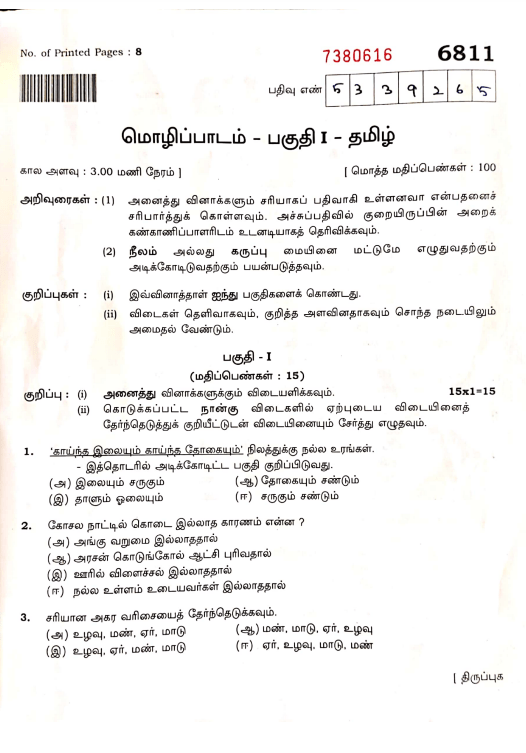 No. of Printed Pages : 8
7380616
6811
பதிவு எண் 5 3 3 9 2 6 5
மொழிப்பாடம் - பகுதி I - தமிழ்
கால அளவு : 3.00 மணி நேரம் ]
[ மொத்த மதிப்பெண்கள் : 100
அறிவுரைகள் : (1) அனைத்து வினாக்களும் சரியாகப் பதிவாகி உள்ளனவா என்பதனைச்
சரிபார்த்துக் கொள்ளவும். அச்சுப்பதிவில் குறையிருப்பின் அறைக்
கண்காணிப்பாளரிடம் உடனடியாகத் தெரிவிக்கவும்.
(2) நீலம் அல்லது கருப்பு மையினை மட்டுமே எழுதுவதற்கும்
அடிக்கோடிட்டுவதற்கும் பயன்படுத்தவும்.
குறிப்புகள் : (i) இவ்வினாத்தாள் ஐந்து பகுதிகளைக் கொண்டது.
(ii) விடைகள் தெளிவாகவும், குறித்த அளவினதாகவும் சொந்த நடையிலும்
அமைதல் வேண்டும்.
பகுதி - I
(மதிப்பெண்கள் : 15)
குறிப்பு : (i) அனைத்து வினாக்களுக்கும் விடையளிக்கவும். 15x1=15
(ii) கொடுக்கப்பட்ட நான்கு விடைகளில் ஏற்புடைய விடையினைத்
தேர்ந்தெடுத்துக் குறியீட்டுடன் விடையினையும் சேர்த்து எழுதவும்.
1. 'காய்ந்த இலையும் காய்ந்த தோகையும்' நிலத்துக்கு நல்ல உரங்கள்.
- இத்தொடரில் அடிக்கோடிட்ட பகுதி குறிப்பிடுவது.
(அ) இலையும் சருகும் (ஆ) தோகையும் சண்டும்
(இ) தாளும் ஓலையும் (ஈ) சருகும் சண்டும்
2. கோசல நாட்டில் கொடை இல்லாத காரணம் என்ன ?
(அ) அங்கு வறுமை இல்லாததால்
(ஆ) அரசன் கொடுங்கோல் ஆட்சி புரிவதால்
(இ) ஊரில் விளைச்சல் இல்லாததால்
(ஈ) நல்ல உள்ளம் உடையவர்கள் இல்லாததால்
3. சரியான அகர வரிசையைத் தேர்ந்தெடுக்கவும்.
(அ) உழவு, மண், ஏர், மாடு (ஆ) மண், மாடு, ஏர், உழவு
(இ) உழவு, ஏர், மண், மாடு (ஈ) ஏர், உழவு, மாடு, மண்
[ திருப்புக